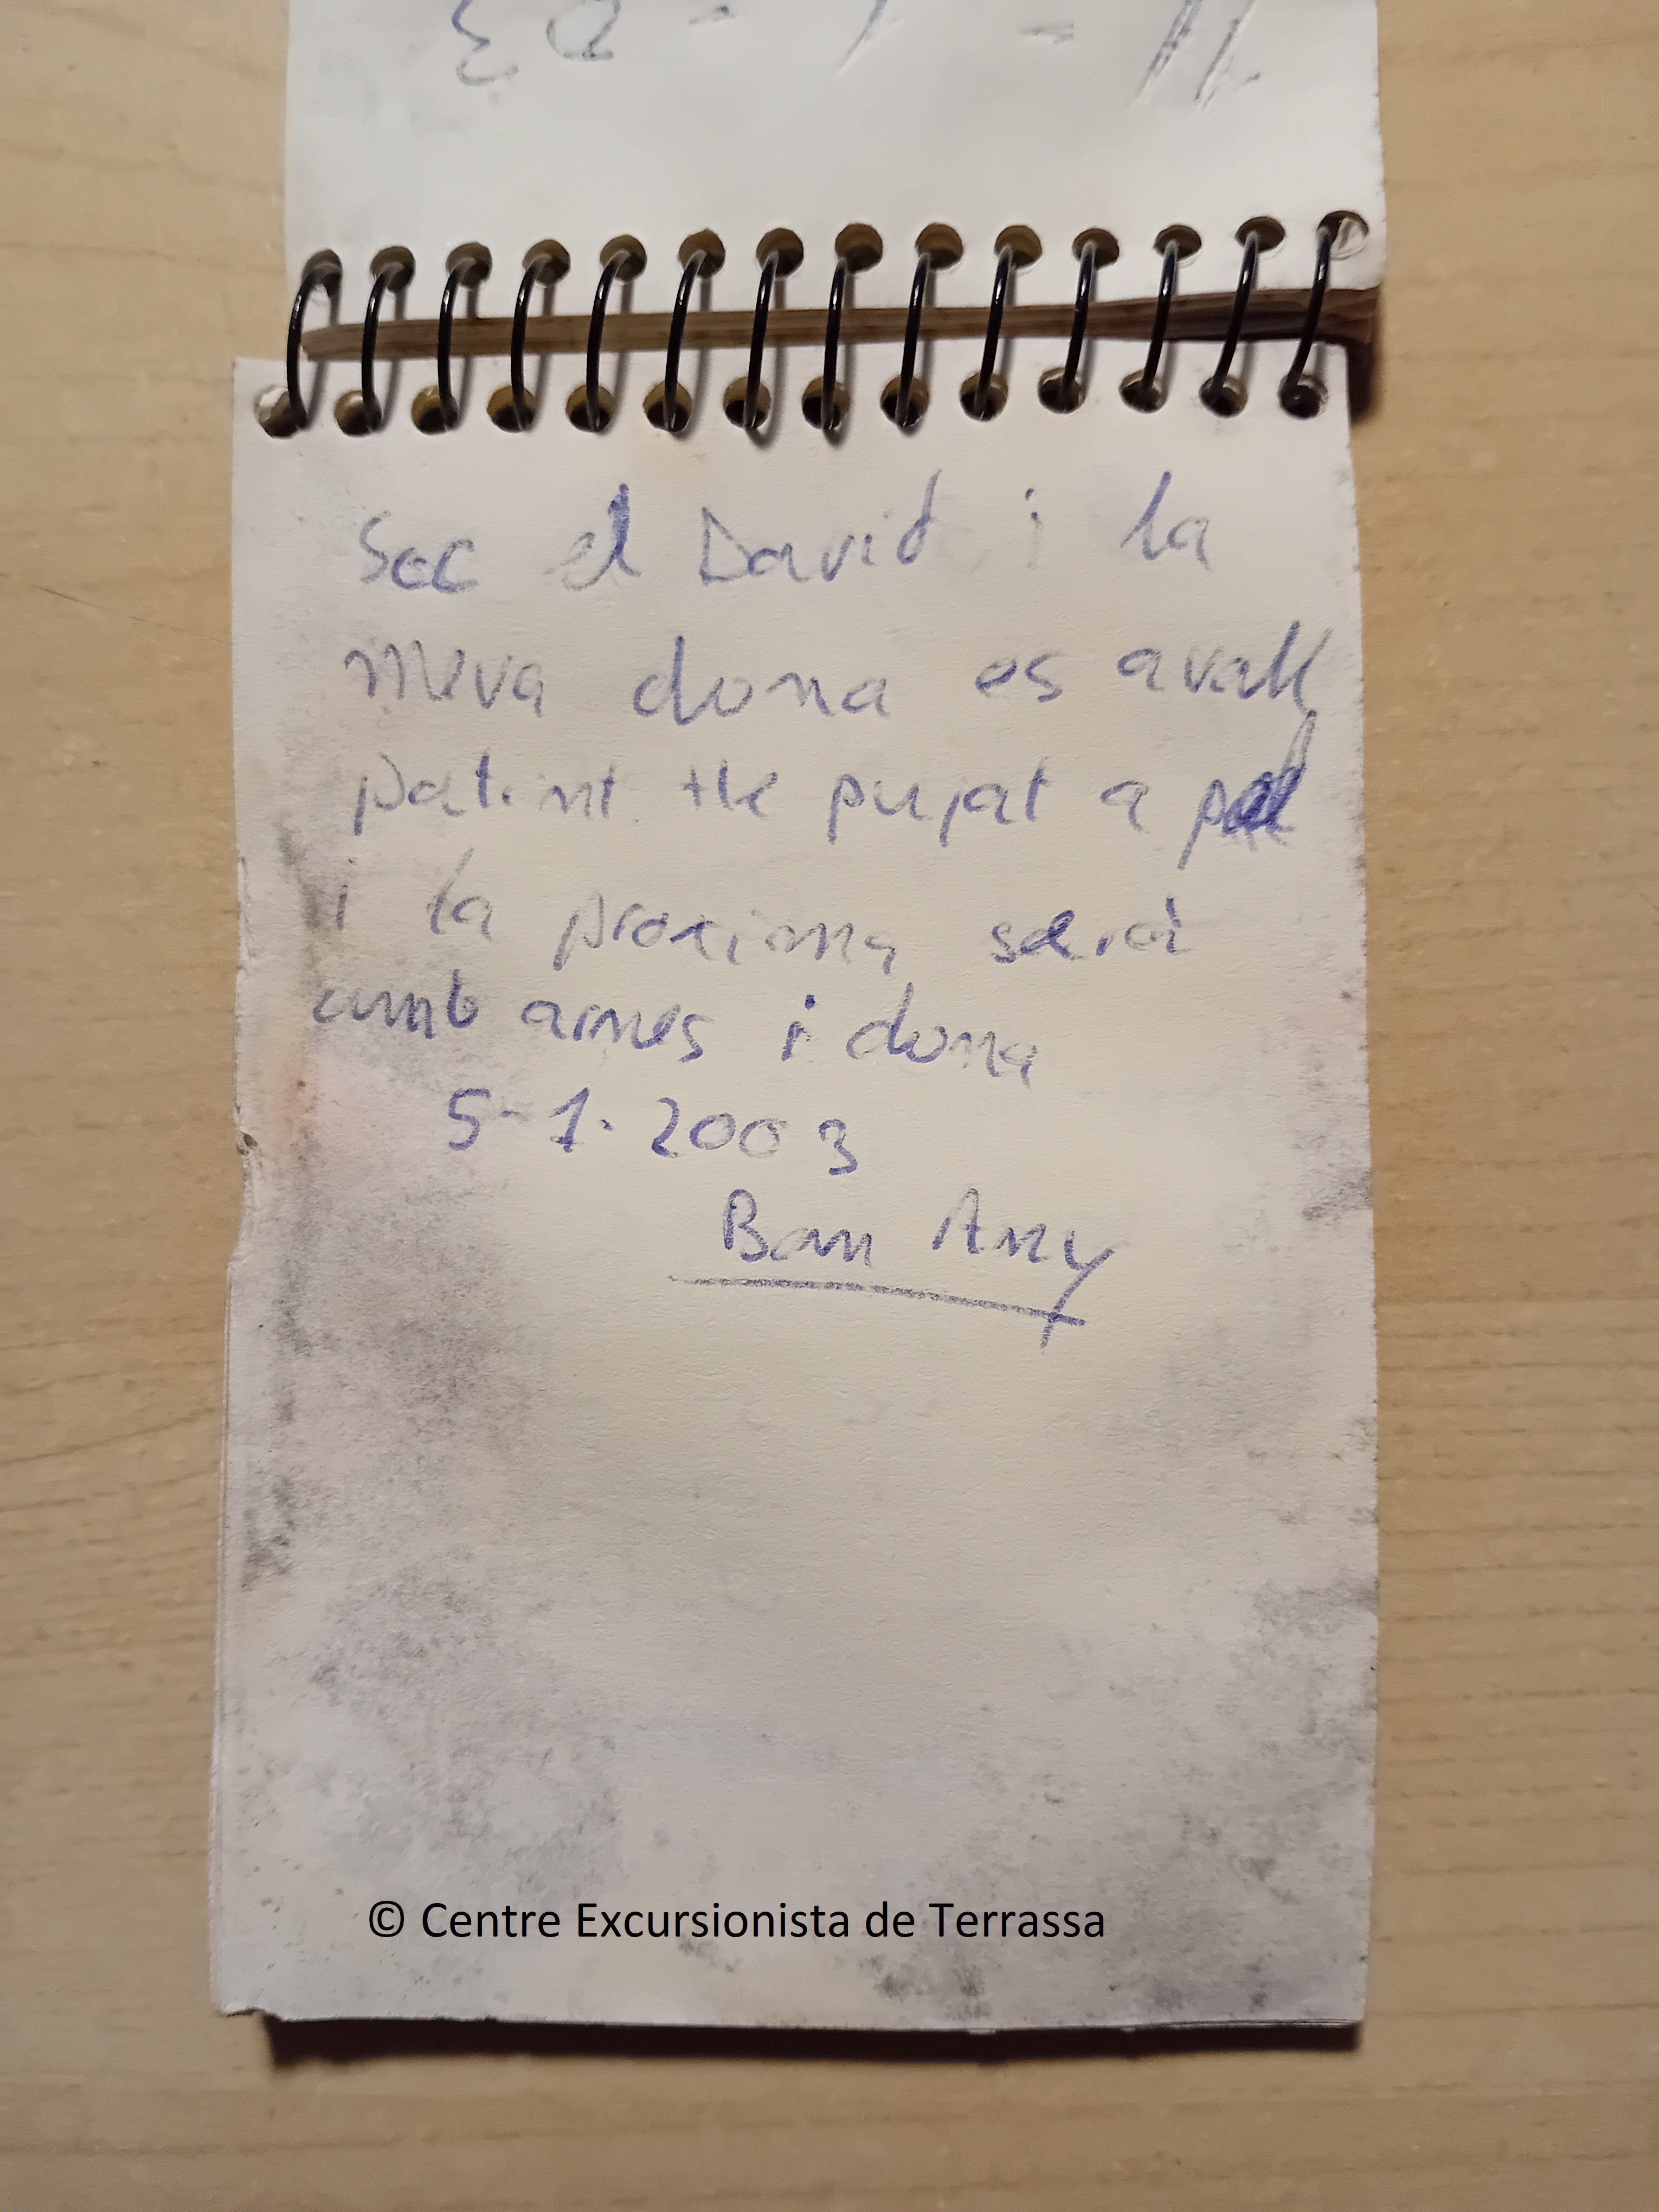 Soc el David i la
meva dona es avall
patint. He pujat a pel
i la proxima serà
amb arnes i dona
5-1-2003
Bon Any
© Centre Excursionista de Terrassa